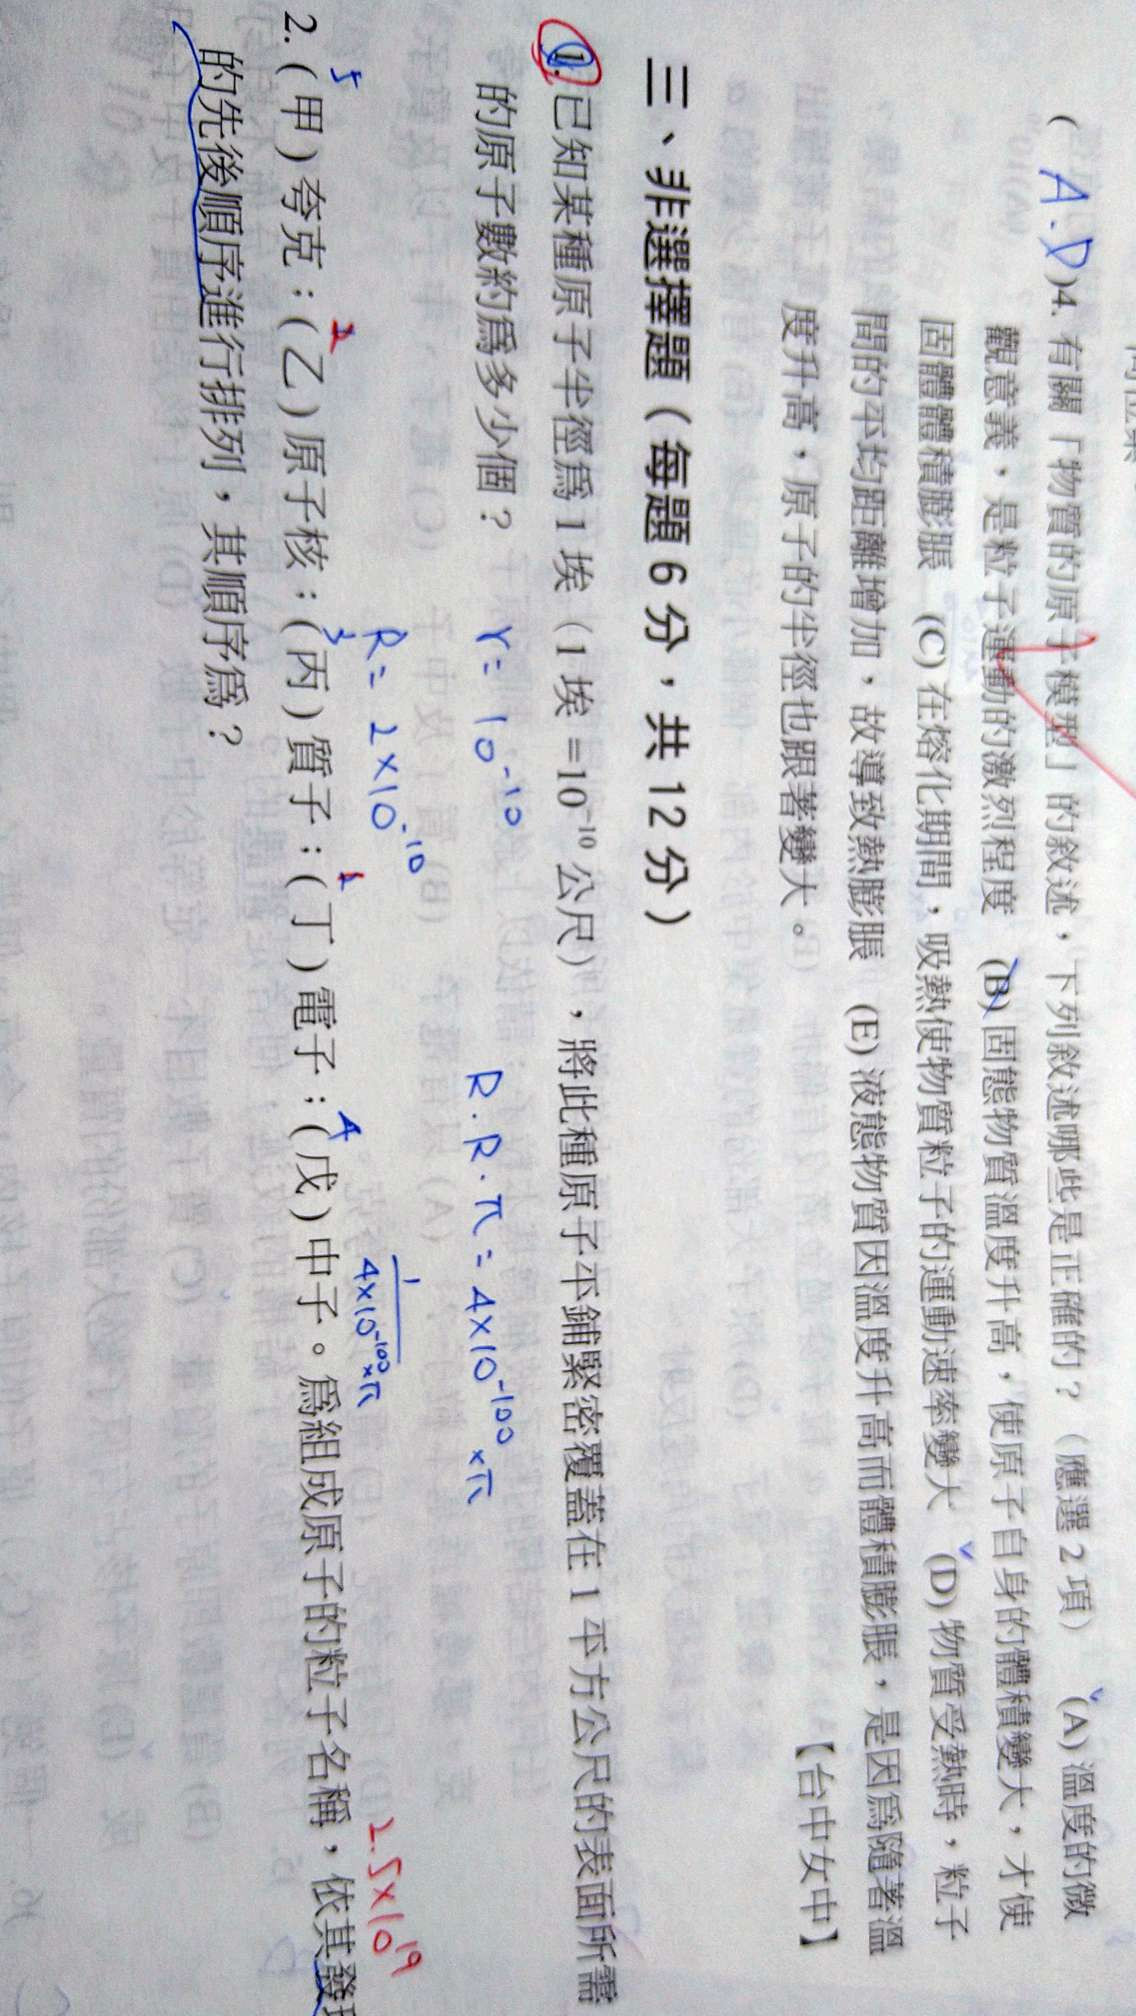 ( A.D )4. 有關「物質的原子模型」的敘述，下列敘述哪些是正確的？（應選 2 項） (A) 溫度的微
觀意義，是粒子運動的激烈程度 (B) 固態物質溫度升高，使原子自身的體積變大，才使
固體體積膨脹 (C) 在熔化期間，吸熱使物質粒子的運動速率變大 (D) 物質受熱時，粒子
間的平均距離增加，故導致熱膨脹 (E) 液態物質因溫度升高而體積膨脹，是因為隨著溫
度升高，原子的半徑也跟著變大。 【台中女中】
三、非選擇題（每題 6 分，共 12 分）
1. 已知某種原子半徑為 1 埃（1 埃 =10⁻¹⁰ 公尺），將此種原子平鋪緊密覆蓋在 1 平方公尺的表面所需
的原子數約為多少個？
r= 10⁻¹⁰
R.R.π = 4×10⁻¹⁰⁰ ×π
R= 2×10⁻¹⁰
1
4×10⁻¹⁰⁰×π
2.5×10¹⁹
5 2 3 1 4
2. ( 甲 ) 夸克；( 乙 ) 原子核；( 丙 ) 質子；( 丁 ) 電子；( 戊 ) 中子。為組成原子的粒子名稱，依其發
的先後順序進行排列，其順序為？